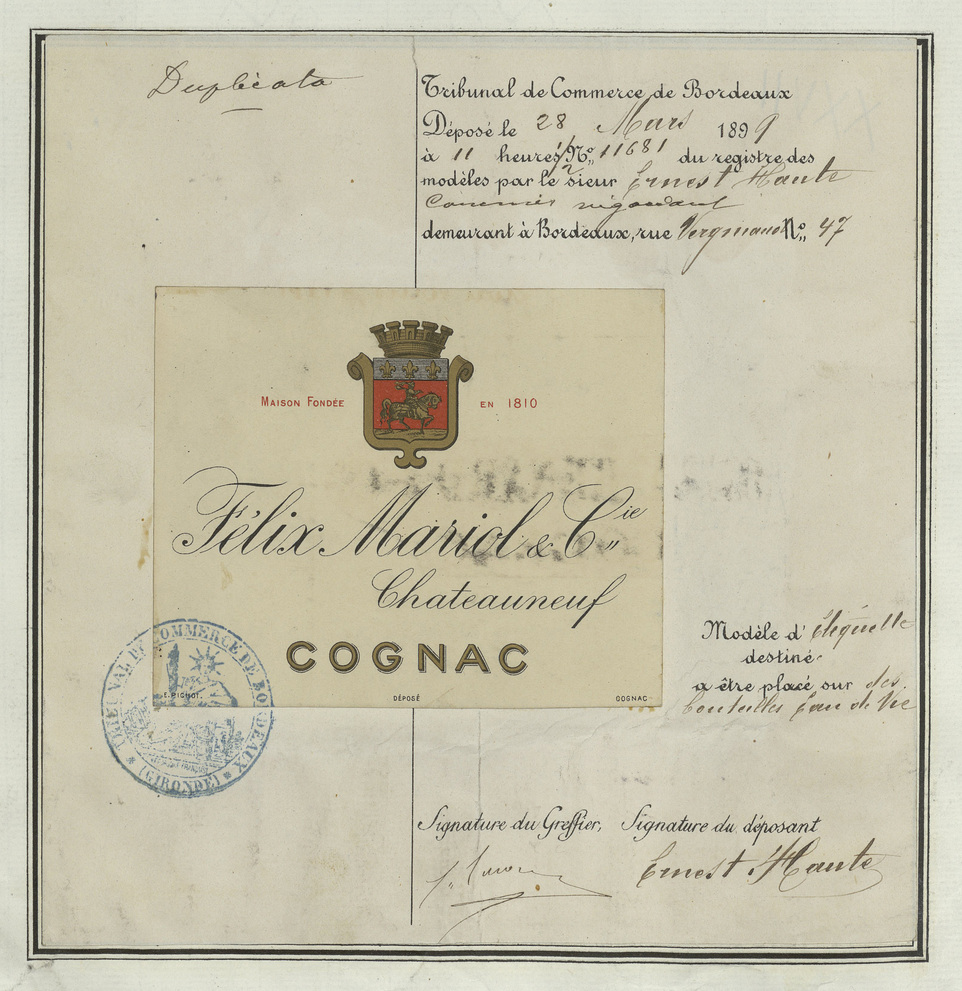 Duplicata
Tribunal de Commerce de Bordeaux
Déposé le 28 Mars 1899
à 11 heures 1/2 No,, 11681 du registre des
modèles par le sieur Ernest Haute
Commis négociant
demeurant à Bordeaux, rue Vergniaud No,, 47
MAISON FONDÉE EN 1810
Félix Mariol & Cie,,
Chateauneuf
COGNAC
E. PICHOT. DÉPOSÉ COGNAC
TRIBUNAL DE COMMERCE DE BORDEAUX
* (GIRONDE) *
Modèle d'étiquette
destiné
a être placé sur des
bouteilles Eau de Vie
Signature du Greffier, Signature du déposant
Ernest Haute